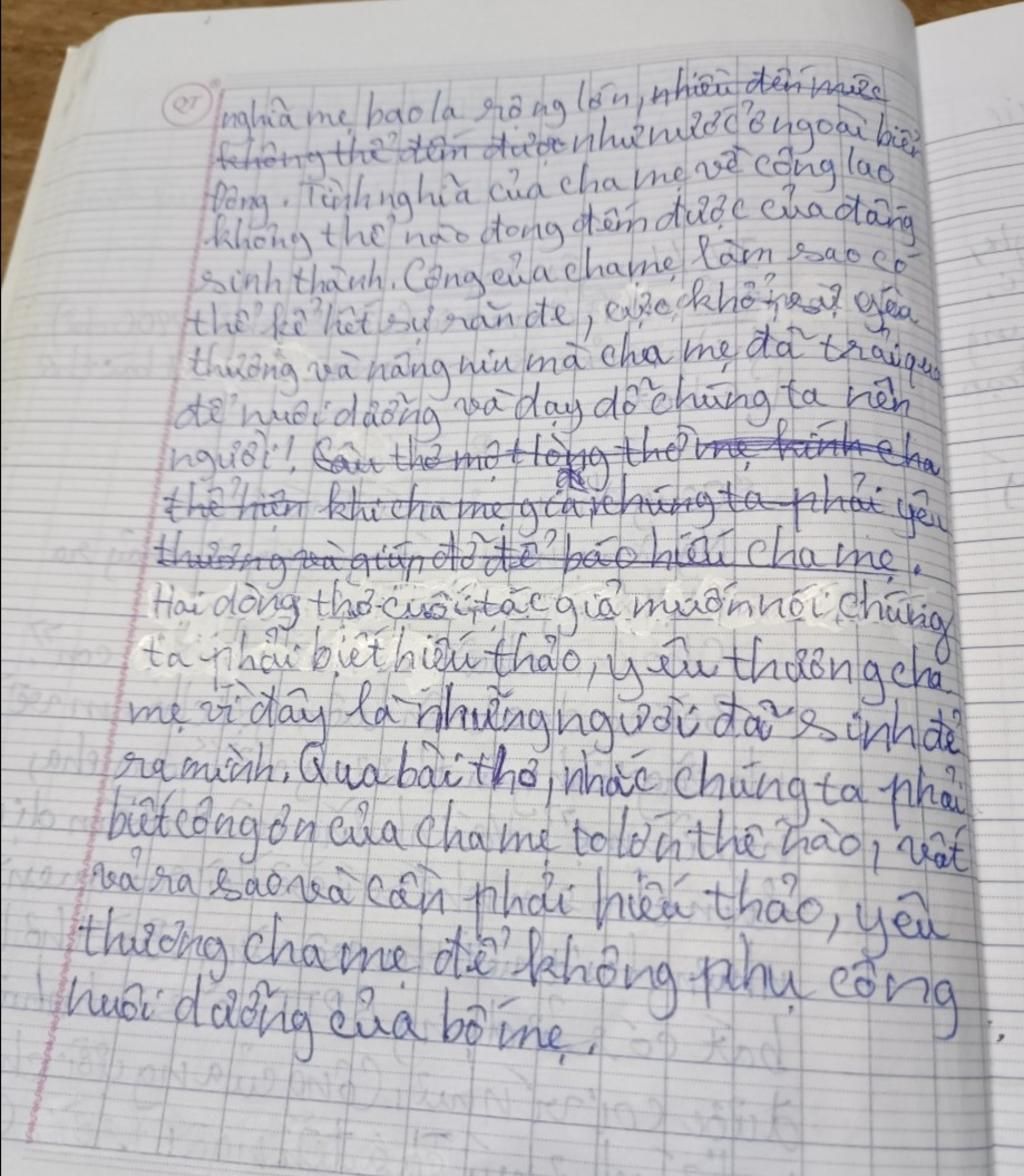 QT nghĩa mẹ bao la rộng lớn, nhiều đến mức
không thể đếm được như nước ở ngoài biển
Đông. Tình nghĩa của cha mẹ về công lao
không thể nào đong đếm được của đấng
sinh thành. Công của cha mẹ làm sao có
thể kể hết sự răn đe, cực khổ, yêu
thương và nâng niu mà cha mẹ đã trải qua
để nuôi dưỡng và dạy dỗ chúng ta nên
người! Câu thơ một lòng thờ mẹ kính cha
thể hiện khi cha mẹ già, chúng ta phải yêu
thương và giúp đỡ để báo hiếu cha mẹ.
Hai dòng thơ cuối, tác giả muốn nói chúng
ta phải biết hiếu thảo, yêu thương cha
mẹ vì đây là những người đã sinh đẻ
ra mình. Qua bài thơ, nhắc chúng ta phải
biết công ơn của cha mẹ to lớn thế nào, vất
vả ra sao và cần phải hiếu thảo, yêu
thương cha mẹ để không phụ công
nuôi dưỡng của bố mẹ.